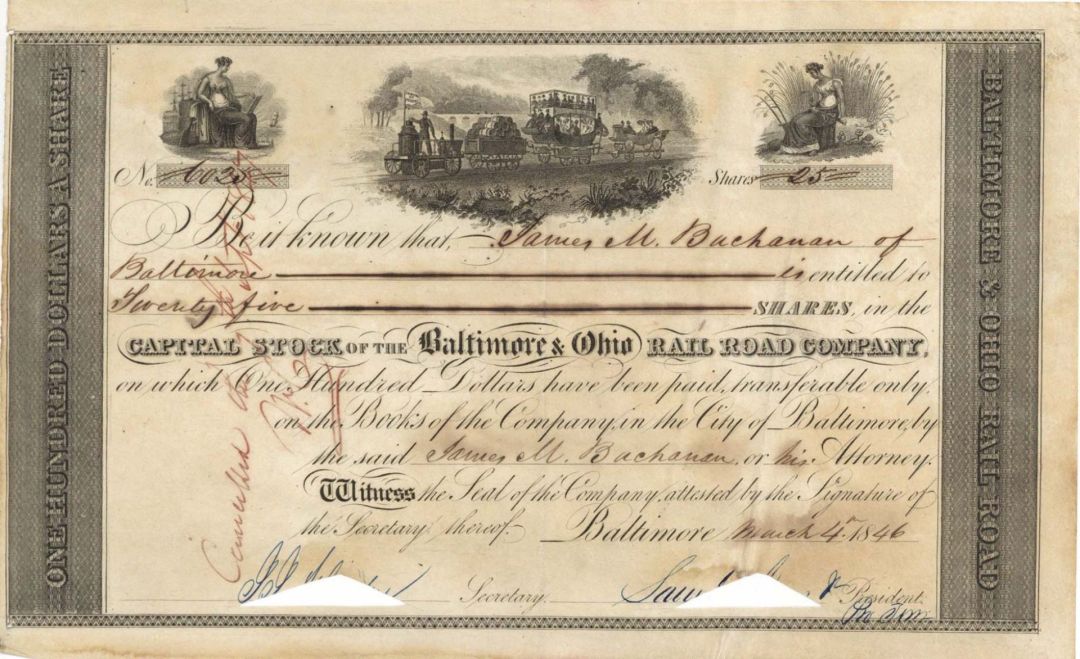 ONE HUNDRED DOLLARS A SHARE
No. 6025
Shares 25
Be it known that, James M. Buchanan of
Baltimore is entitled to
Twenty five SHARES, in the
CAPITAL STOCK OF THE Baltimore & Ohio RAIL ROAD COMPANY,
on which One Hundred Dollars have been paid, transferable only,
on the Books of the Company, in the City of Baltimore, by
the said James M. Buchanan, or his Attorney.
Witness the Seal of the Company, attested by the Signature of
the Secretary thereof. Baltimore March 4th 1846
Secretary.
President
Pro Tem.
Cancelled
BALTIMORE & OHIO RAIL ROAD